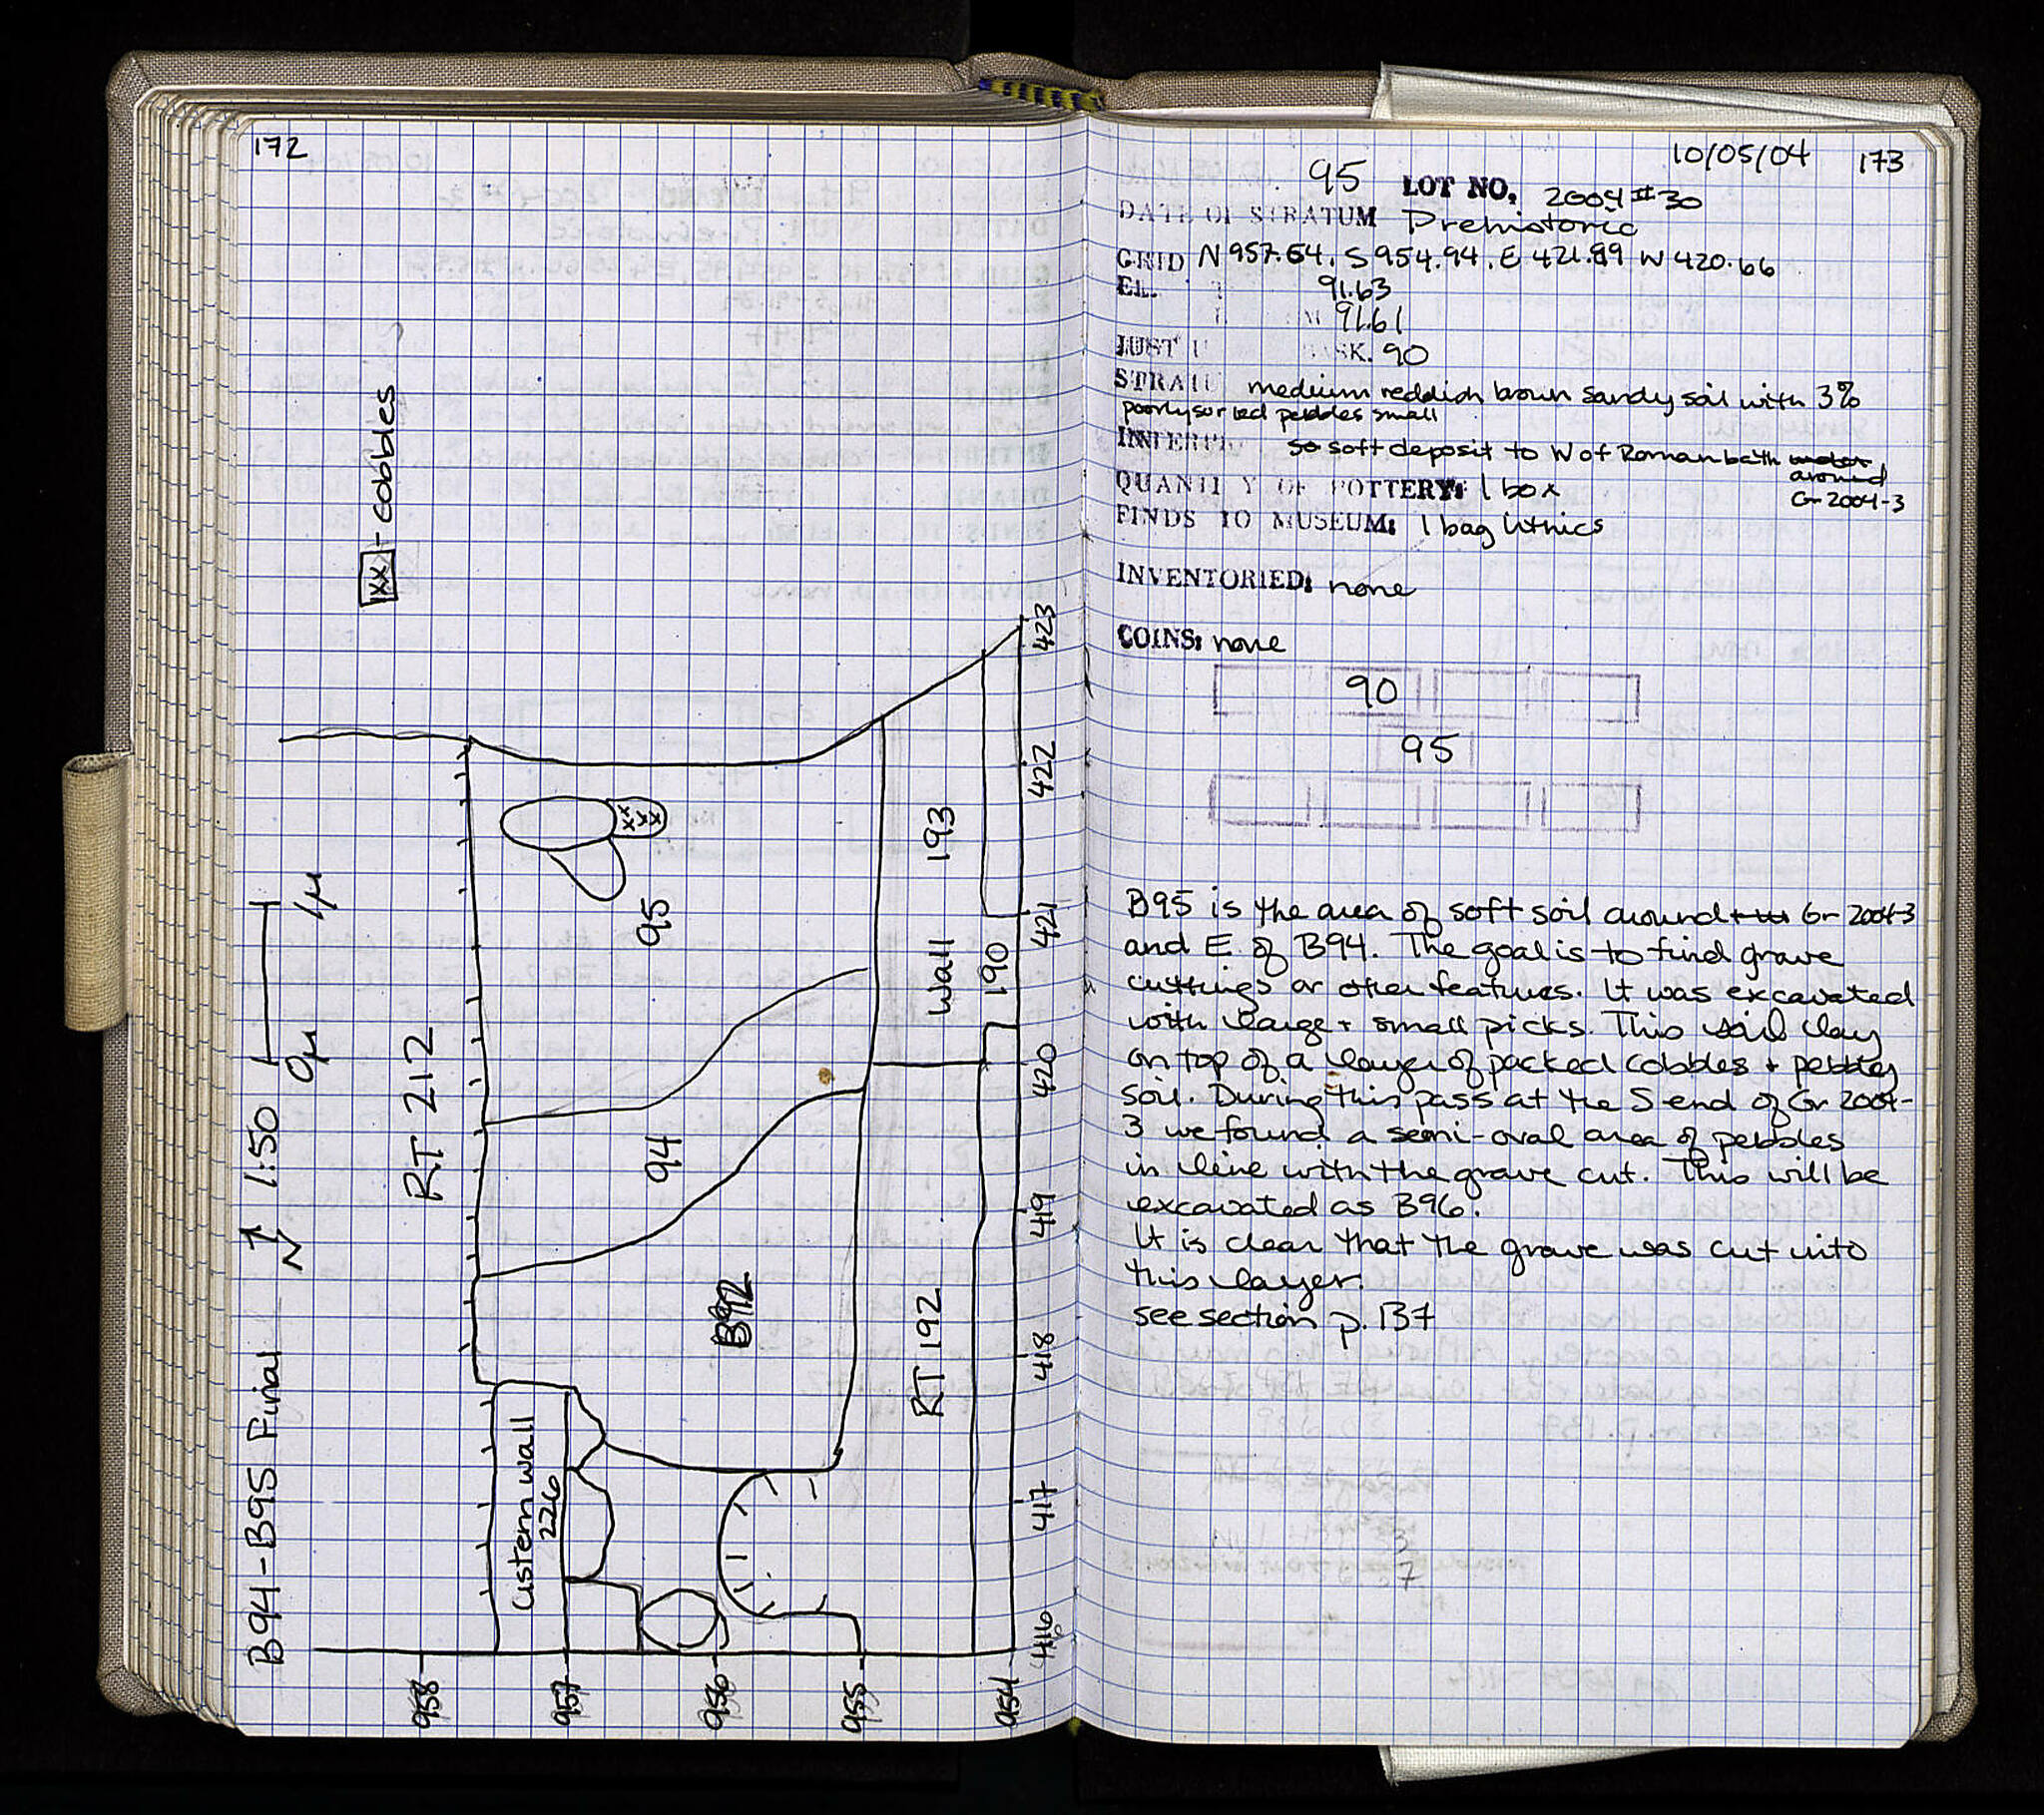 172
B94-B95 Final
N 1:50
0μ 1μ
xx - cobbles
RT 212
95
94
B92
Cistern wall
226
RT 192
wall 193
190
958
957
956
955
954
416
417
418
419
420
421
422
423
10/05/04 173
95 LOT NO. 2004 #30
DATE OF STRATUM Prehistoric
GRID N 957.64, S 954.94, E 421.89 W 420.66
EL. 91.63
M 91.61
JUST U ASK. 90
STRATU medium reddish brown sandy soil with 3%
poorly sorted pebbles small
INTERPR so soft deposit to W of Roman bath
around
Gr 2004-3
QUANTITY OF POTTERY: 1 box
FINDS TO MUSEUM: 1 bag lithics
INVENTORIED: none
COINS: none
90
95
B95 is the area of soft soil around Gr 2004-3
and E of B94. The goal is to find grave
cuttings or other features. It was excavated
with large + small picks. This soil lay
on top of a layer of packed cobbles + pebbley
soil. During this pass at the S end of Gr 2004-
3 we found a semi-oval area of pebbles
in line with the grave cut. This will be
excavated as B96.
It is clear that the grave was cut into
this layer.
see section p. 137